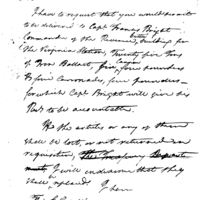 I have to request that you would permit
to be delivered to Capt Francis Bright
Commander of the Revenue Cutter, building for
the Virginia Station, Twenty five Tons
of Iron Ballast, five four pounders
& five Carronades, five pounders
for which Capt Bright will give his
Rect to be accountable.
If the articles or any of them
shall be lost, or not returned on
requisition, the Treasury Department
will endeavour that they
shall be replaced. I am